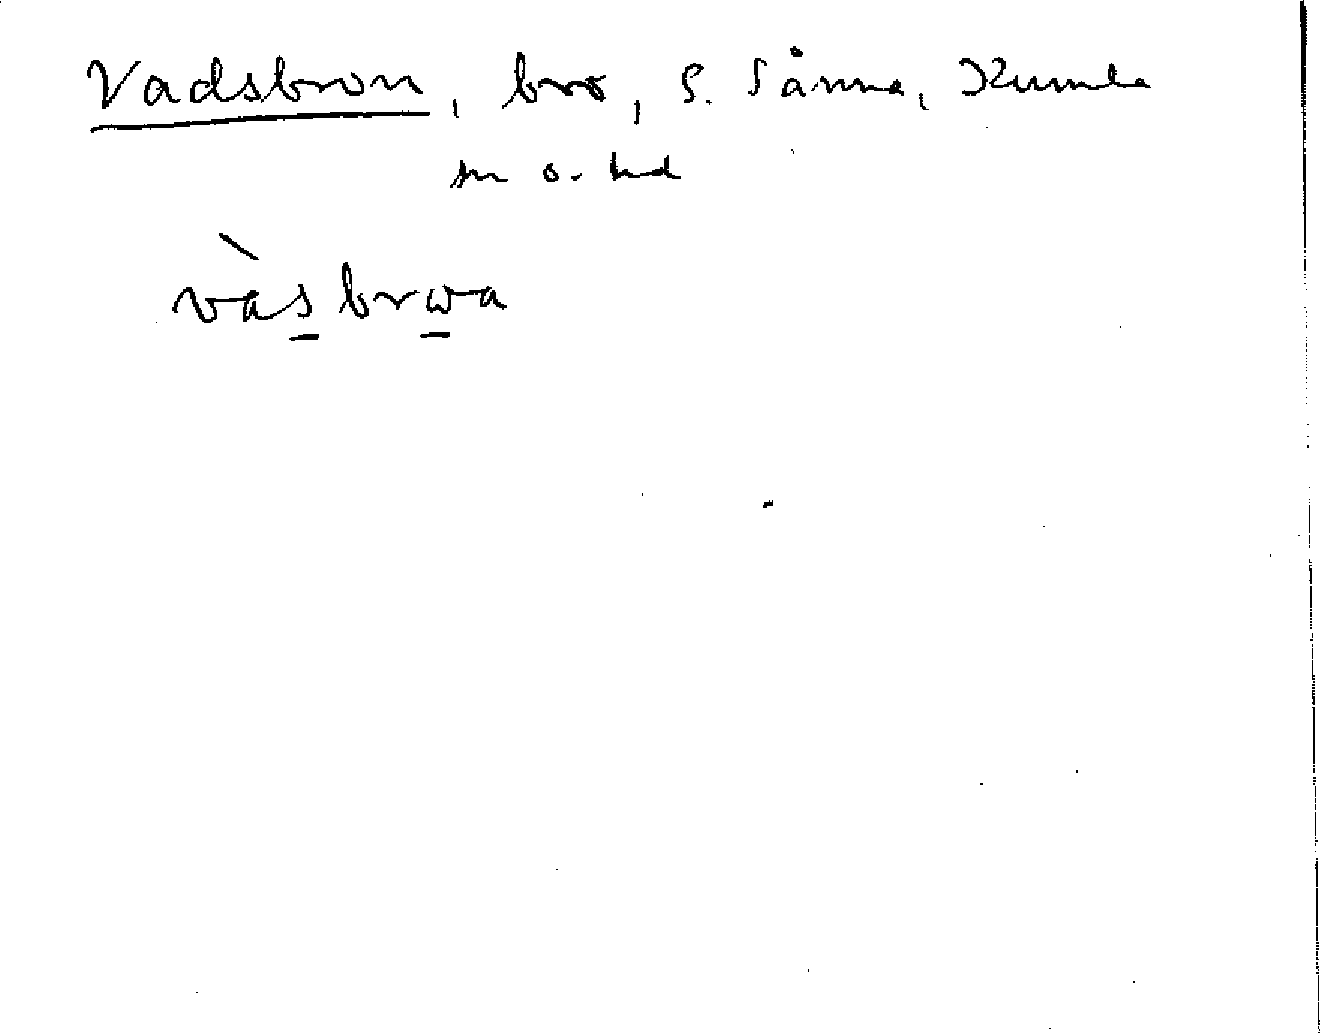 Vadsbron, bro, S. Sånna, Kumla
sn o. hd
vàsbrωa